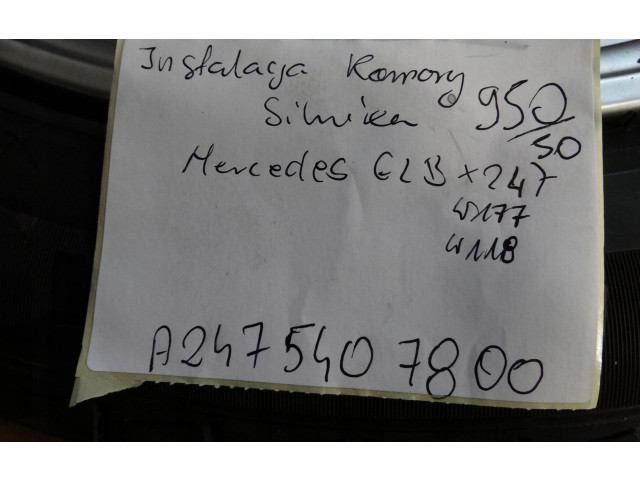 Instalacja Komory
Silnika 950/50
Mercedes GLB x247
W177
W118
A247 540 7800